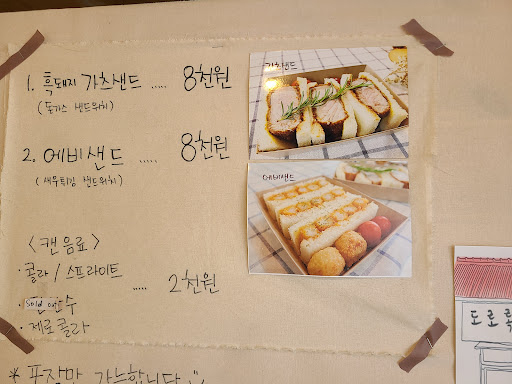 1. 흑돼지 가츠샌드 ..... 8천원
(돈가스 샌드위치)
가츠샌드
2. 에비샌드 ..... 8천원
(새우튀김 샌드위치)
에비샌드
<캔음료>
· 콜라 / 스프라이트
..... 2천원
· Sold out 수
· 제로콜라
* 포장만 가능합니다
도로록